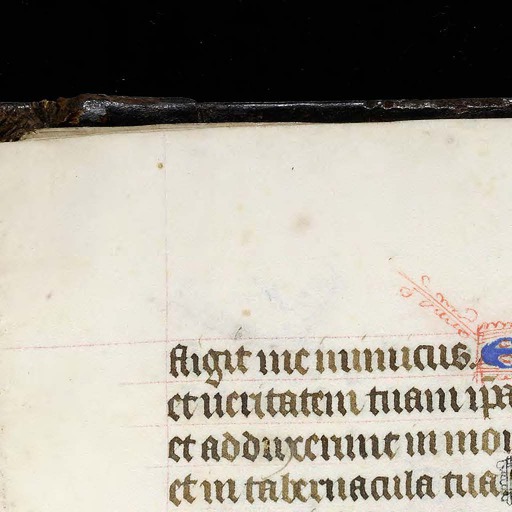 fligit me inimicus. E
et ueritatem tuam ipa
et adduxerunt in mon
et in tabernacula tua